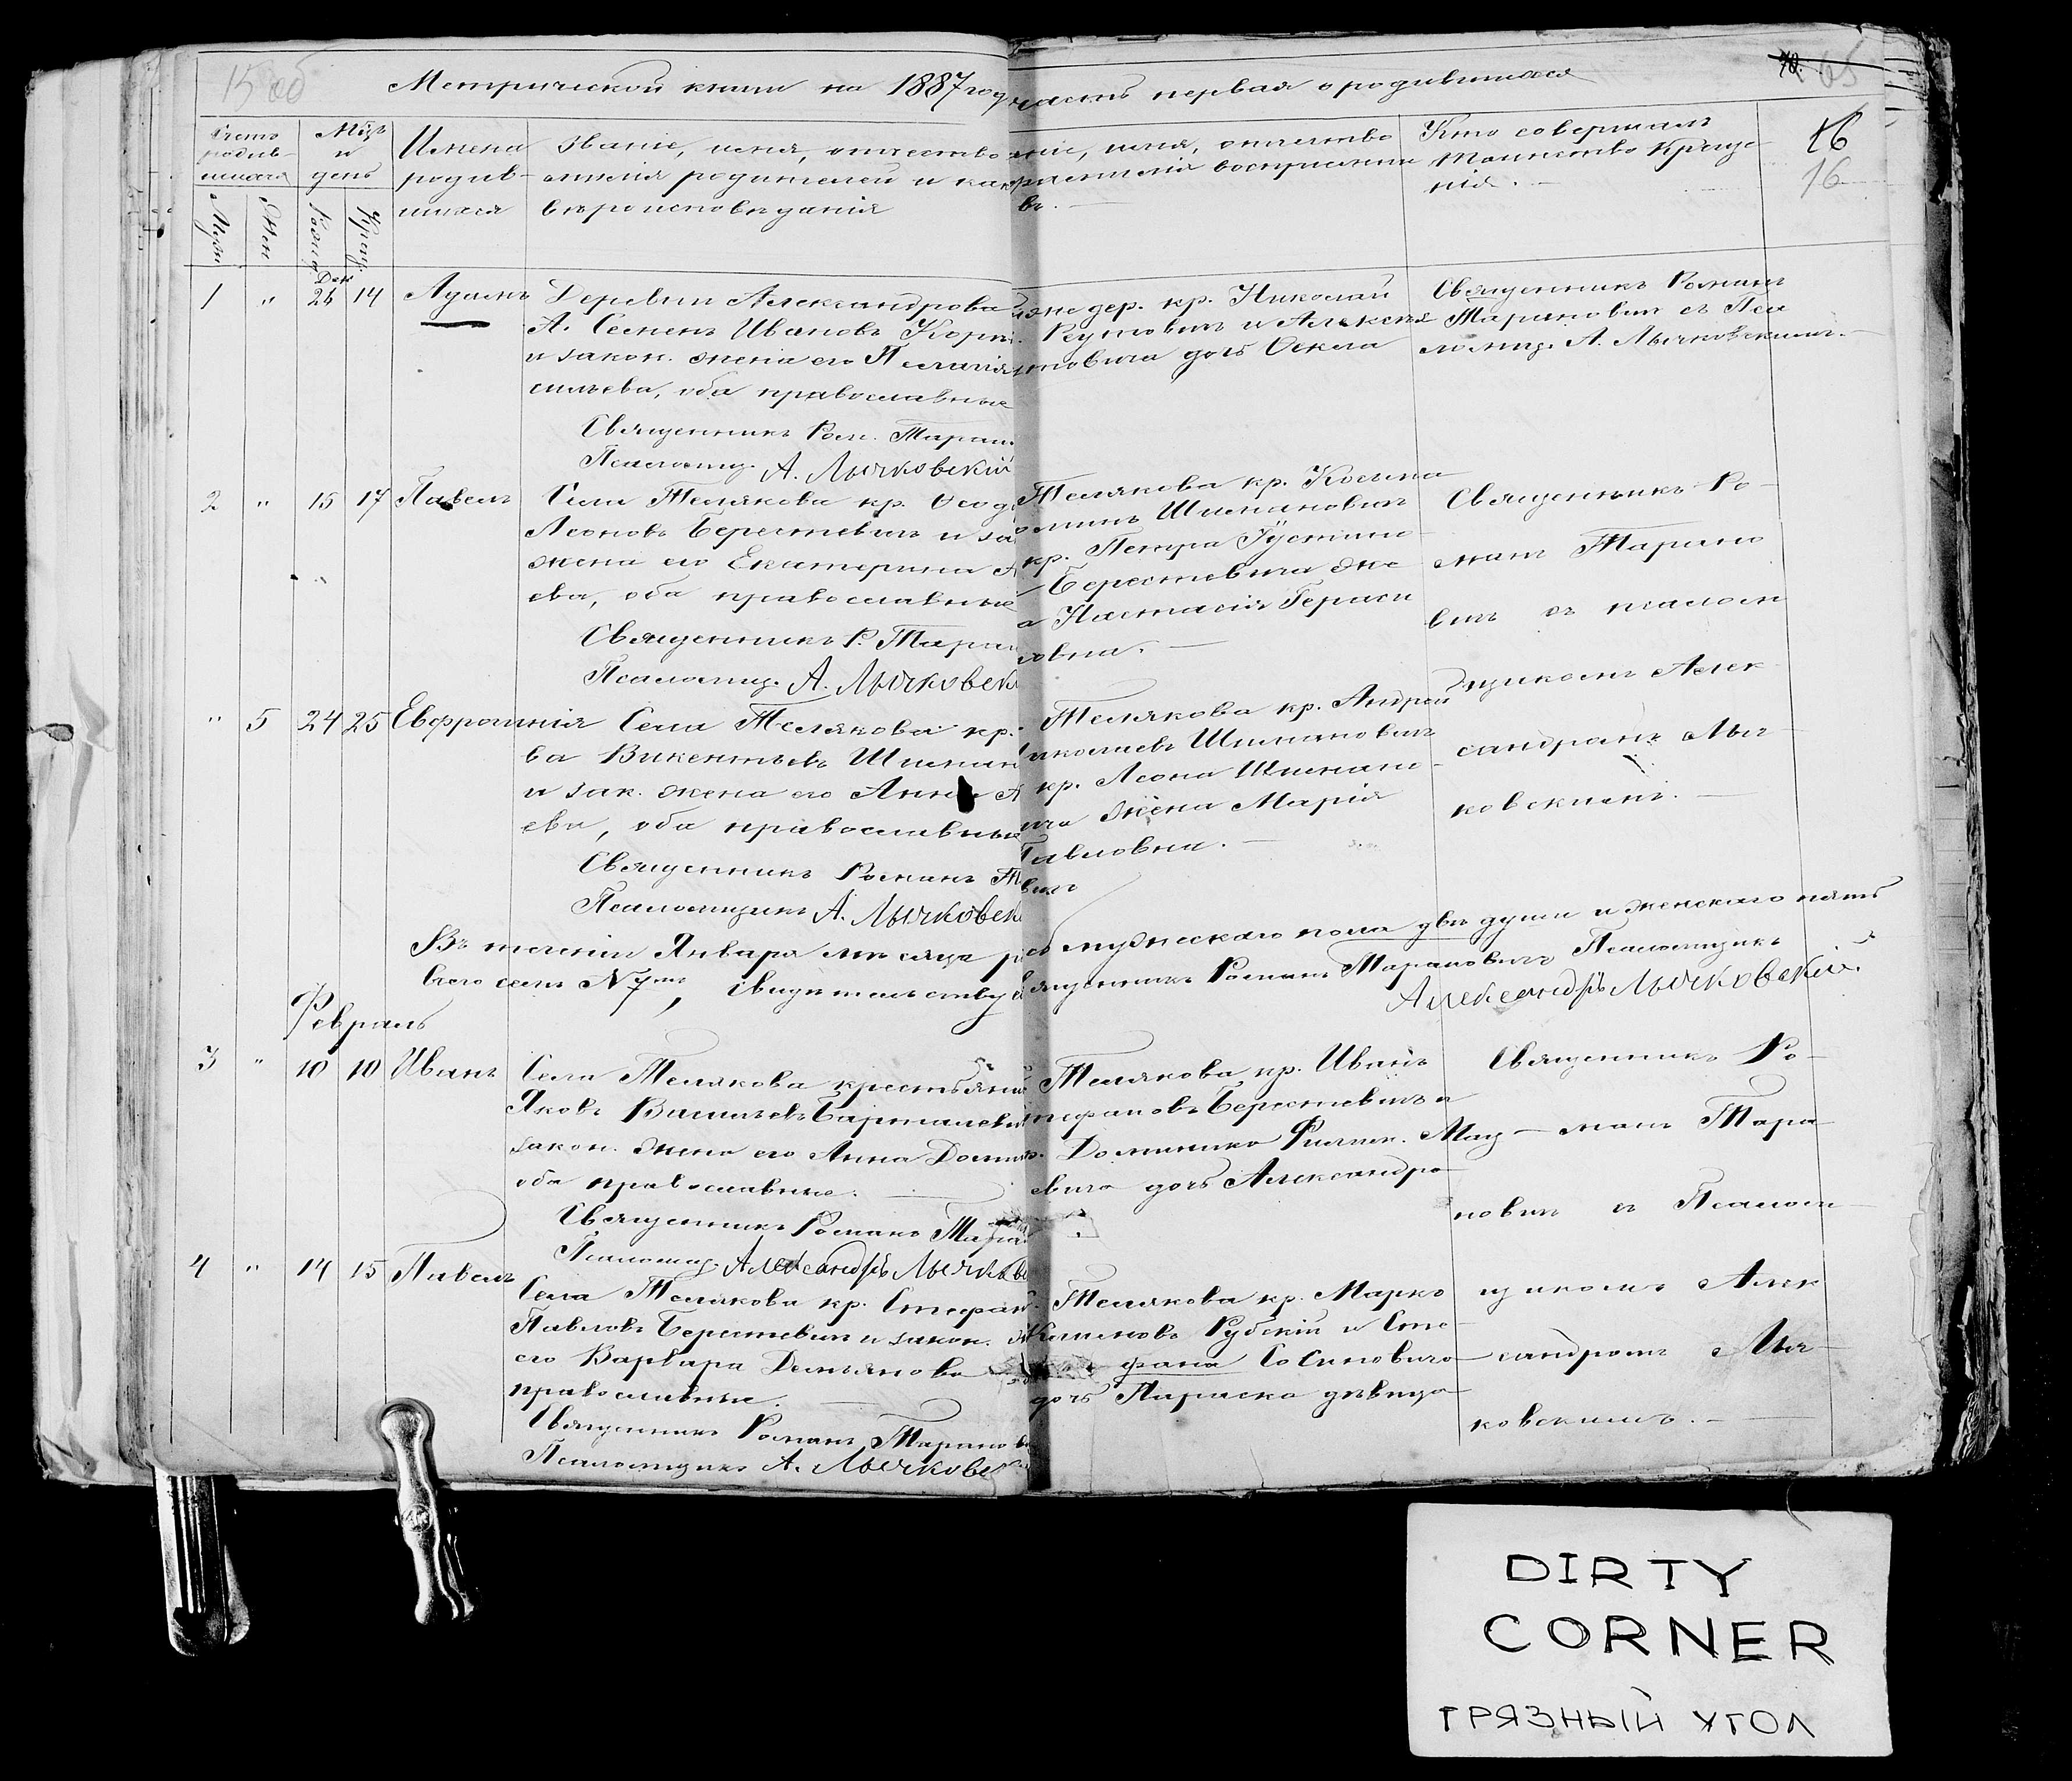 15 об
Метрической книги на 1887 год
часть первая о родившихся
65
Счетъ родив-шихся
Муж.
Жен.
Мѣс. и день
Рожд.
Крещ.
Имена
родив-
шихся
Званіе, имя, отчество
фамилія родителей и како
вѣроисповѣданія
имя, отчество
фамилія воспріемни
ковъ. —
Кто совершалъ
таинство Креще-
нія. —
16
16
1 " Дек 26 14 Адамъ
Деревни Александрова
А. Семенъ Ивановъ
и закон. жена его Пелагія
сильева, оба православные
Священникъ Ром. Таран
Псаломщ. А. Лычковскій
дер. кр. Николай
Реутовичъ и Алексѣя
товича дочь Фекла
Священникъ Романъ
Тарановичъ съ Пса
ломщ. А. Лычковскимъ. —
2 " 15 17 Павелъ
Села Телякова кр. Феод
Леоновъ Берестевичъ и за
жена его Екатерина А
ева, оба православные
Священникъ Р. Таран
Псаломщ. А. Лычковск
Телякова кр. Косьма
Шимановичъ
кр. Петра Іустино
Берестевича же
а Настасія Гераси
мовна. —
Священникъ Ро-
манъ Тарано
вичъ съ псалом
щикомъ Алек
сандромъ Лыч-
ковскимъ. —
" 5 24 25 Евфросинія
Села Телякова кр.
ва Викентьевъ Шиман
и зак. жена его Анна А
ева, оба православные
Священникъ Романъ Т
Псаломщикъ А. Лычковск
Телякова кр. Андрей
иколаевъ Шимановичъ
кр. Леона Шимано-
ича жена Марія
Павловна. —
вичъ
Въ теченіи Января мѣсяца р
сь мужескаго пола двѣ души и женскаго пять
всего семь N 7мъ, свидѣтельству
ященникъ Романъ Тарановичъ Псаломщикъ
Александръ Лычковскій.
Февраль
3 " 10 10 Иванъ
Села Телякова крестьянинъ
Яковъ Васильевъ
закон. жена его Анна Доми
оба православные. —
Священникъ Романъ Таран
Псаломщ. Александръ Лычков
Телякова кр. Иванъ
тефановъ Берестевичъ и
Доминика Филип. Мац-
евича дочь Александра
Священникъ Ро-
манъ Тара-
новичъ съ Псалом-
щикомъ Алек
сандромъ Лыч-
ковскимъ. —
4 " 14 15 Павелъ
Села Телякова кр. Стефанъ
Павловъ Берестевичъ и закон. ж
его Варвара Демьянова
православные. —
Священникъ Романъ Таранов
Псаломщикъ А. Лычковс
Телякова кр. Марко
Рубскій и Сте-
фана Сосиновича
дочь Параска дѣвица
DIRTY
CORNER
ГРЯЗНЫЙ УГОЛ